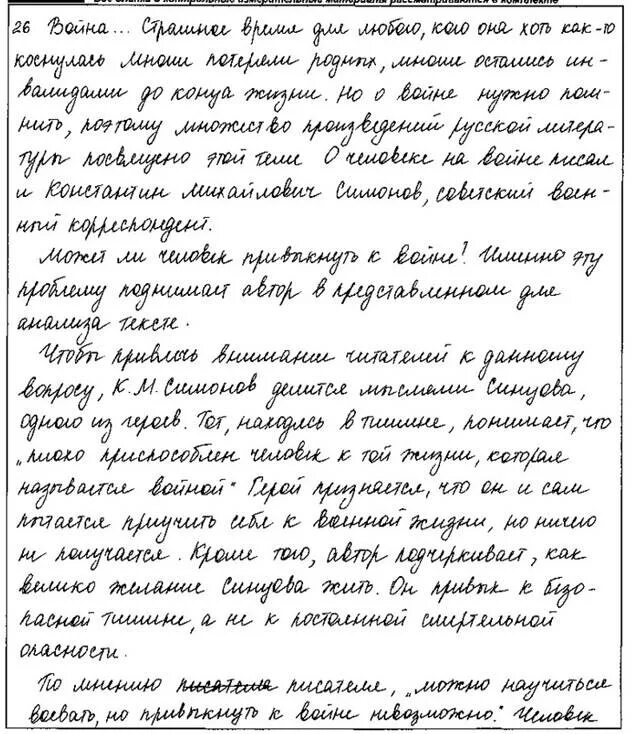 Все бланки и контрольные измерительные материалы рассматриваются в комплекте
26 Война... Страшное время для любого, кого она хоть как-то
коснулась Многие потеряли родных, многие остались ин-
валидами до конца жизни. Но о войне нужно пом-
нить, поэтому множество произведений русской литера-
туры посвящено этой теме О человеке на войне писал
и Константин Михайлович Симонов, советский воен-
ный корреспондент.
Может ли человек привыкнуть к войне? Именно эту
проблему поднимает автор в представленном для
анализа тексте.
Чтобы привлечь внимание читателей к данному
вопросу, К.М.Симонов делится мыслями Синцова,
одного из героев. Тот, находясь в тишине, понимает, что
„плохо приспособлен человек к той жизни, которая
называется войной“ Герой признаётся, что он и сам
пытается приучить себя к военной жизни, но ничего
не получается. Кроме того, автор подчеркивает, как
велико желание Синцова жить. Он привык к безо-
пасной тишине, а не к постоянной смертельной
опасности.
По мнению писателя писателя, „можно научиться
воевать, но привыкнуть к войне невозможно." Человек